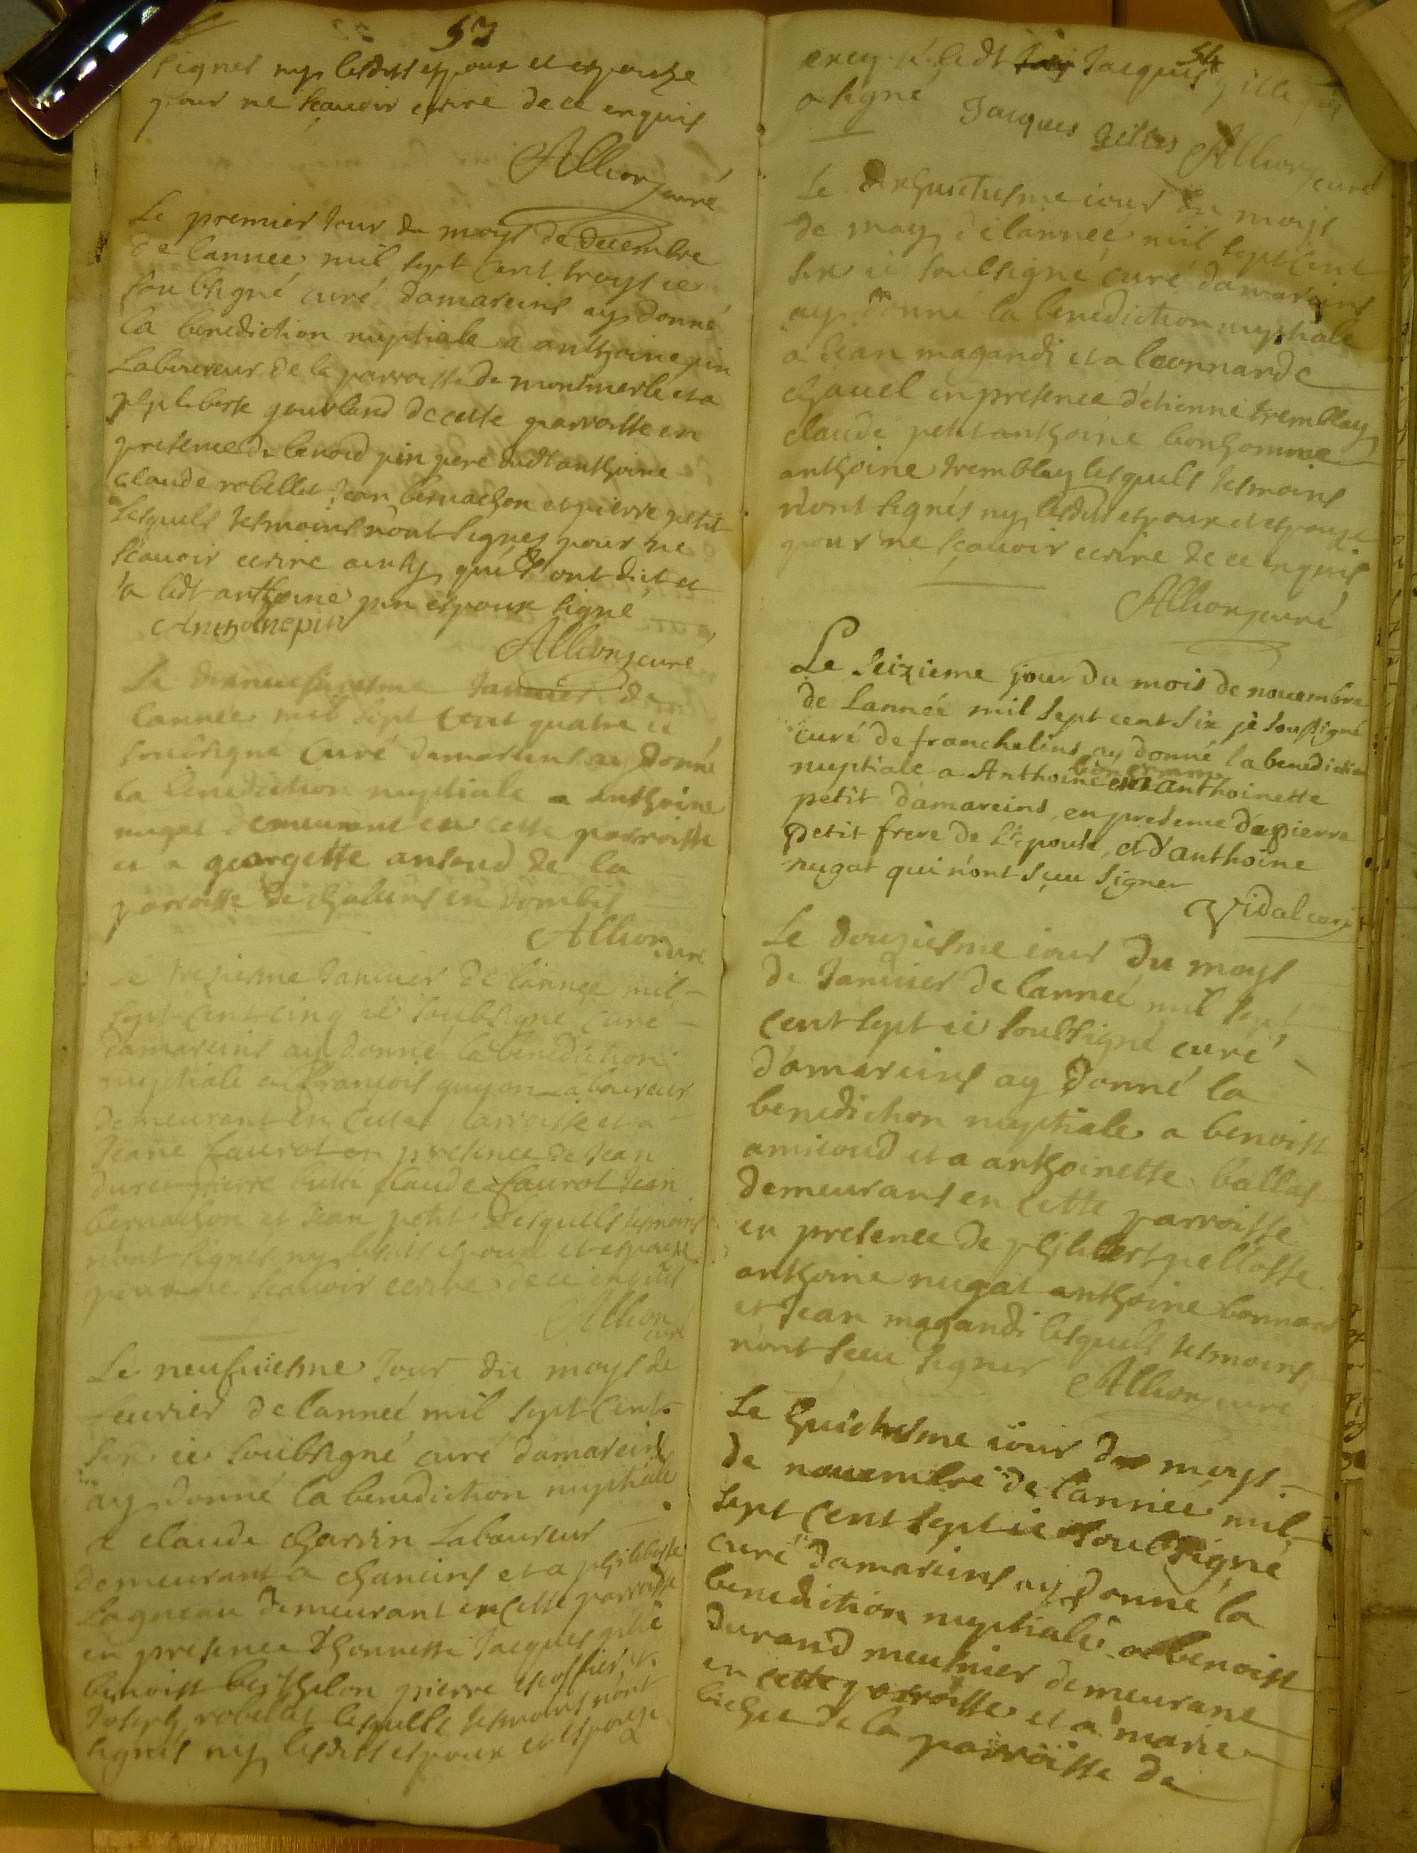 53
signes ny lesdits espoux et espouze
pour ne scavoir ecrire de ce enquis
Allion curé
Le premier Jour du moys de decembre
de lannee mil sept cent troys ie
soubsigné curé damareins ay donné
la benediction nuptiale a anthoine pin
Laboureur de la parroisse de montmerle et a
philiberte gourland de cette parroisse en
presence de benoid pin pere dudt anthoine
claude robellet Jean bernachon et pierre petit
lesquels tesmoins n'ont signes pour ne
scavoir ecrire ainsy qu'ils ont dit et
a ledt anthoine pin espoux signé
Anthoine pin
Allion curé
Le Januier de
lannee mil sept cent quatre ie
soubsigné curé damareins ay donné
la benediction nuptiale a anthoine
nugat demeurant en cette parroisse
et a georgette arnaud de la
parroisse de chaleins en dombes
Allion curé
Le trezieme Januier de lannee mil
sept cent cinq ie soubsigné curé
damareins ay donné la benediction
nuptiale a francois guyon laboureur
demeurant en cette parroisse et a
Jeane faurot en presence de Jean
pierre claude faurot Jean
bernachon et Jean petit lesquels tesmoins
n'ont signes ny lesdits espoux et espouze
pour ne scavoir ecrire de ce enquis
Allion curé
Le neufuiesme Jour du moys de
feurier de lanneé mil sept cent
six ie soubsigné curé damareins
ay donné la benediction nuptiale
a claude charrin Laboureur
demeurant a chaneins et a philiberte
Lagneau demeurant en cette parroisse
en presence d'honneste Jacques gille
benoist berthelon pierre escoffier et
Joseph robellet lesquels tesmoins n'ont
signés ny lesdits espoux et espouze
54
ledt Jacques gille
a signé
Jacques Gilles
Allion curé
Le dixhuictiesme iour du moys
de may de lanneé mil sept cent
six ie soubsigné curé damareins
ay donné la benediction nuptiale
a Jean magandi et a leonnarde
chauel en presence d'etienne tremblay
claude petit anthoine bonhomme
anthoine tremblay lesquels tesmoins
n'ont signés ny lesdits espoux et espouze
pour ne scavoir ecrire de ce enquis
Allion curé
Le seizieme jour du mois de novembre
de Lanneé mil sept cent six je soussigné
curé de franchelins ay donné la benediction
nuptiale a Anthoine et a anthoinette
petit damareins, en presence de pierre
petit frere de L'epouse, et d'anthoine
nugat qui n'ont sceu signer
Vidal curé
Le douziesme iour du moys
de Januier de lanneé mil sept
cent sept ie soubsigné curé
d'amareins ay donné la
benediction nuptiale a benoist
amicoud et a anthoinette ballas
demeurans en cette parroisse
en presence de philibert pellosse
anthoine nugat anthoine bonnard
et Jean magandi lesquels tesmoins
n'ont sceu signer
Allion curé
Le huictiesme iour du moys
de nouembre de l'anneé mil
sept cent sept ie soubsigné
curé damareins ay donné la
benediction nuptiale a benoist
durand meusnier demeurant
en cette parroisse et a marie
bichee de la parroisse de